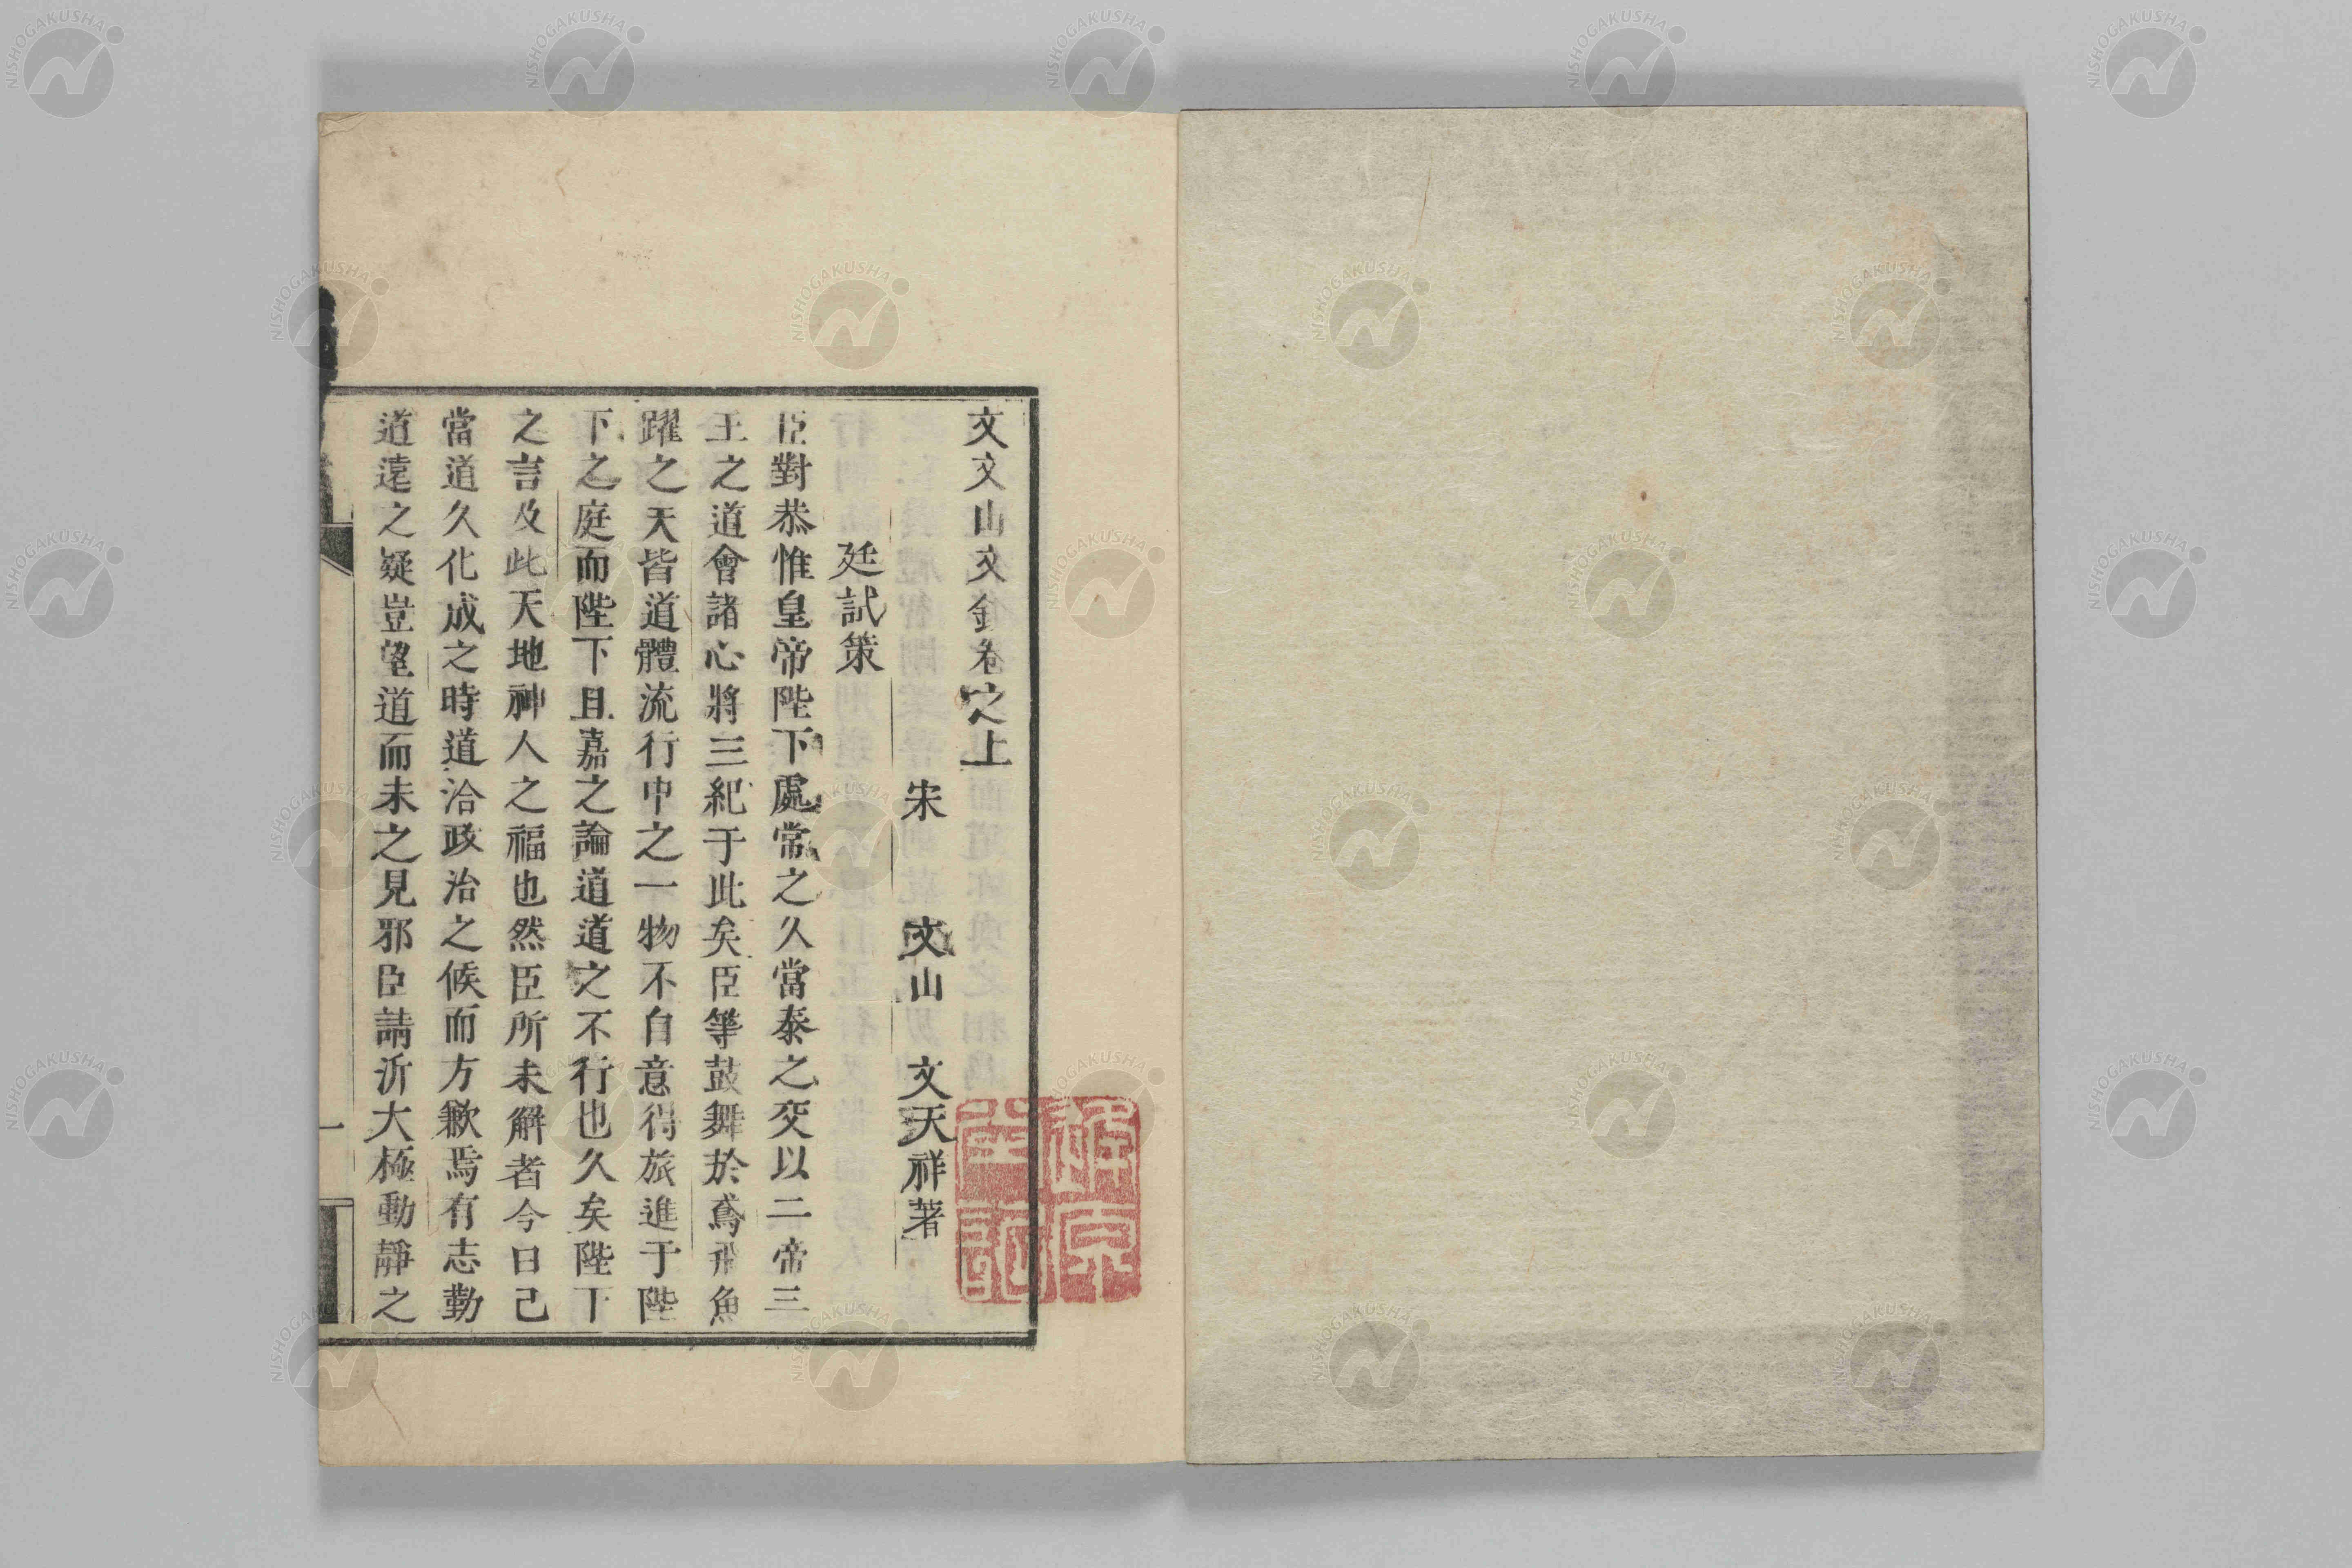 文文山文鈔卷之上
宋 文山 文天祥著
廷試策
臣對恭惟皇帝陛下處常之久當泰之交以二帝三
王之道會諸心將三紀于此矣臣等鼓舞於鳶飛魚
躍之天皆道體流行中之一物不自意得旅進于陛
下之庭而陛下且嘉之論道道之不行也久矣陛下
之言及此天地神人之福也然臣所未解者今日已
當道久化成之時道洽政治之候而方歉焉有志勤
道遠之疑豈望道而未之見邪臣請沂大極動靜之
一
NISHOGAKUSHA